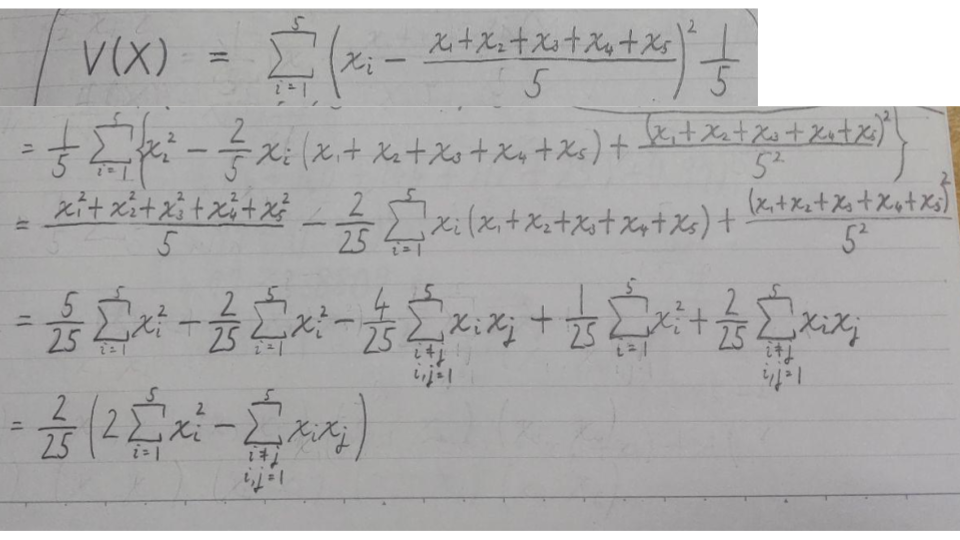 V(X) = \sum_{i=1}^{5} \left( x_i - \frac{x_1+x_2+x_3+x_4+x_5}{5} \right)^2 \frac{1}{5}
= \frac{1}{5} \sum_{i=1}^{5} \left\{ x_2^2 - \frac{2}{5} x_i (x_1+x_2+x_3+x_4+x_5) + \frac{(x_1+x_2+x_3+x_4+x_5)^2}{5^2} \right\}
= \frac{x_1^2+x_2^2+x_3^2+x_4^2+x_5^2}{5} - \frac{2}{25} \sum_{i=1}^{5} x_i (x_1+x_2+x_3+x_4+x_5) + \frac{(x_1+x_2+x_3+x_4+x_5)^2}{5^2}
= \frac{5}{25} \sum_{i=1}^{5} x_i^2 - \frac{2}{25} \sum_{i=1}^{5} x_i^2 - \frac{4}{25} \sum_{\substack{i \neq j \\ i,j=1}}^{5} x_i x_j + \frac{1}{25} \sum_{i=1}^{5} x_i^2 + \frac{2}{25} \sum_{\substack{i \neq j \\ i,j=1}}^{5} x_i x_j
= \frac{2}{25} \left( 2 \sum_{i=1}^{5} x_i^2 - \sum_{\substack{i \neq j \\ i,j=1}}^{5} x_i x_j \right)